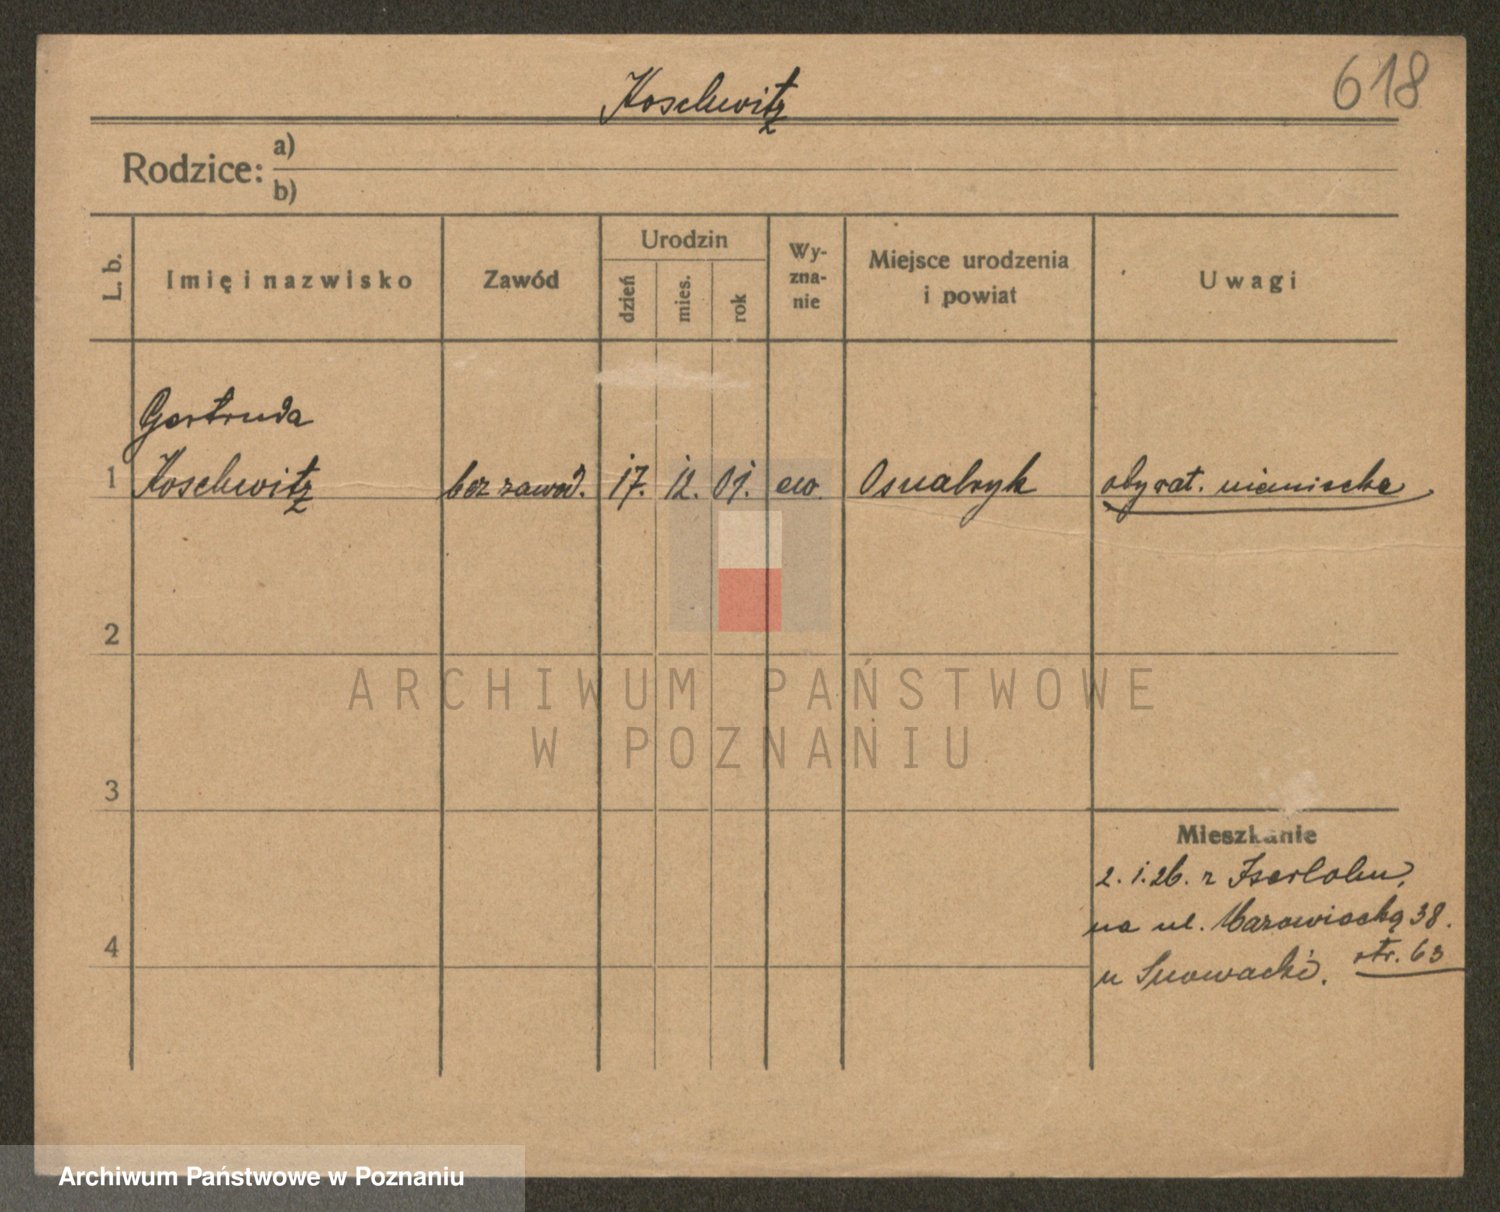 618
Koschwitz
Rodzice: a)
b)
L. b.
Imię i nazwisko
Zawód
Urodzin
dzień
mies.
rok
Wy-
zna-
nie
Miejsce urodzenia
i powiat
Uwagi
Gertruda
1 Koschwitz bez zawod. 17. 12. 01. ew. Osnabryk obywat. niemiecka
2
3
4
Mieszkanie
2. 1. 26. z Iserlohn,
na ul. Mazowiecką 38.
u Snowacki. str. 63
ARCHIWUM PAŃSTWOWE
W POZNANIU
Archiwum Państwowe w Poznaniu